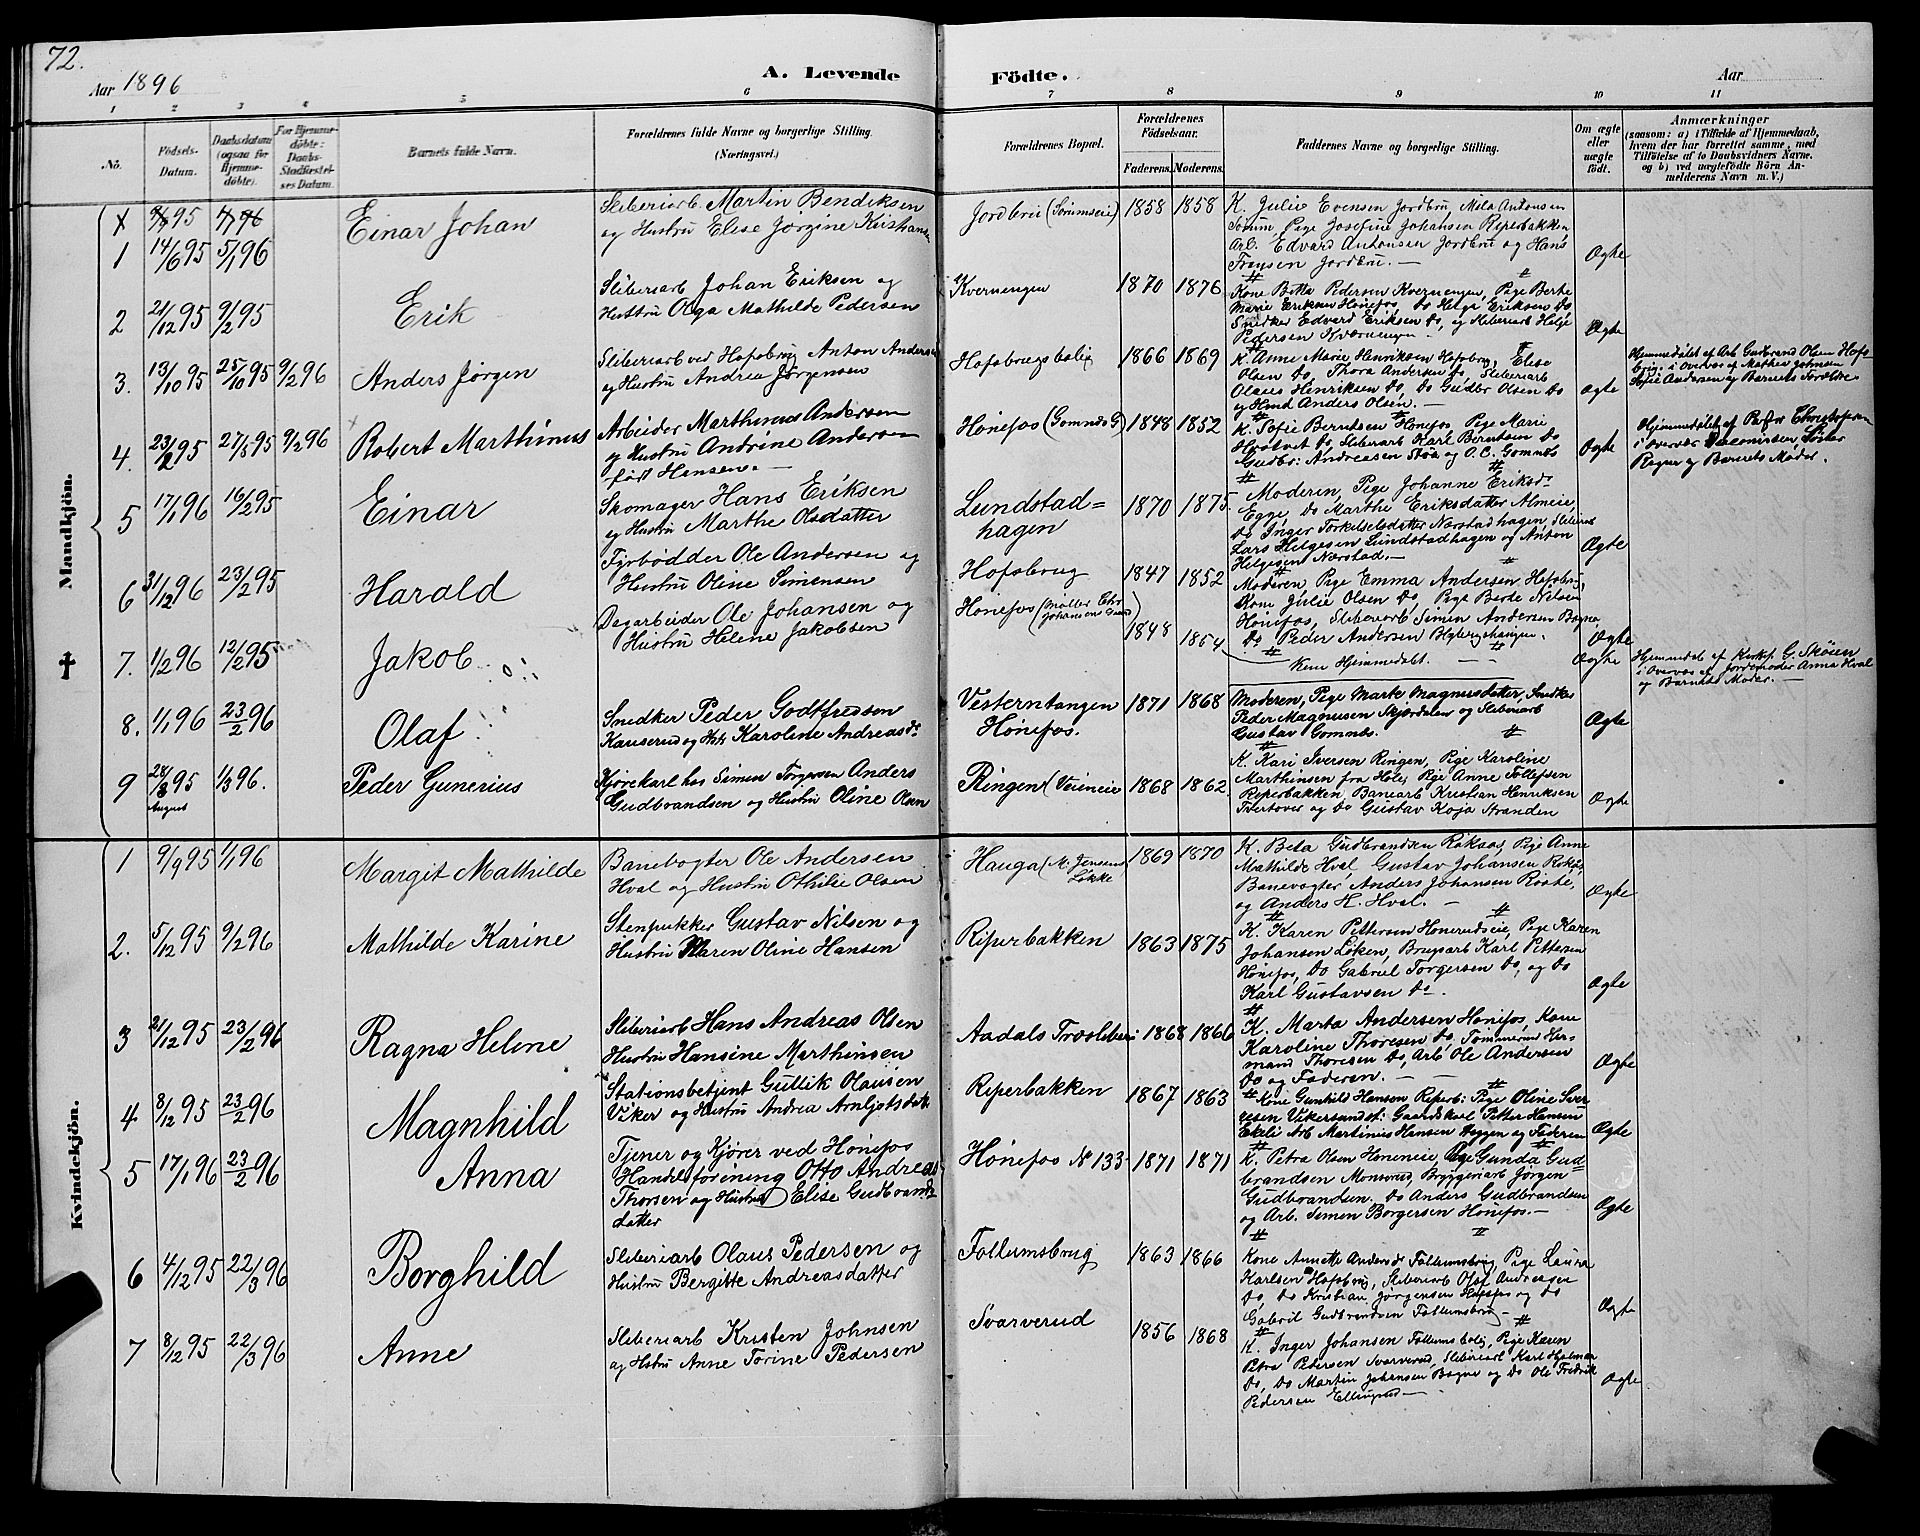 72.
Aar 1896
A. Levende Födte.
Aar
1 2 3 4 5 6 7 8 9 10 11
No.
Födsels-Datum.
Daabsdatum (ogsaa for Hjemmedöbte).
For Hjemmedöbte: Daabs-Stadfæstelses Datum.
Barnets fulde Navn.
Forældrenes fulde Navne og borgerlige Stilling.
(Næringsvei.)
Forældrenes Bopæl.
Forældrenes Födselsaar.
Faderens. Moderens.
Faddernes Navne og borgerlige Stilling.
Om ægte eller uægte födt.
Anmærkninger
(saasom: a) i Tilfælde af Hjemmedaab,
hvem der har forrettet samme, med
Tilföielse af to Daabsvidners Navne.
og b) ved uægtefödte Börn An-
melderens Navn m. V.)
Mandkjön.
1 14/6 95 5/1 96
Einar Johan
Sliberiarb Martin Bendiksen
og Hustru Elise Jørgine Kristians
Jordbru (Sørumseie) 1858 1858
K. Julie Evensen Jordbru Mila Antonsen
Sørum, Pige Josefine Johansen Riperbakken
Arb. Edvard Antonsen Jordbru og Hans
Fransen Jordbru. —
Ægte
2 21/12 95 9/2 95
Erik
Sliberiarb Johan Eriksen og
Hustru Olga Mathilde Pedersen
Kvernengen 1870 1876
Kone Betta Pedersen Kvernengen, Pige Berthe
Marie Eriksen Hønefos, Do Helga Eriksen Do
Snedker Edvard Eriksen Do, og Sliberiarb Helge
Pedersen Kværnengen
Ægte
3. 13/10 95 25/10 95 9/2 96
Anders Jørgen
Sliberiarb ved Hofsbrug Anton Anders
og Hustru Andrea Jørgensen
Hofsbrugsbolig 1866 1869
K. Anne Marie Henriksen Hofsbrug, Elise
Olsen Do, Thora Andersen Do Sliberiarb
Olaus Henriksen Do, Do Gudbr Olsen Do
og Anders Olsen. —
Ægte
Hjemmedøbt af Arb Gudbrand Olsen Hofs
brug: i Overvær af Mathea Johnsen
Sofie Andersen og Barnets Forældre
4. 23/2 95 27/5 95 9/2 96
Robert Marthinus
Arbeider Marthinus Andersen
og Hustru Andrine Andersen
født Hansen. —
Hønefos (Gomnes G) 1848 1852
K. Sofie Berntsen Hønefos, Pige Marie
Do Sliberiarb Karl Berntsen Do
Gudbr: Andreasen Støa og O. C. Gomnes
Ægte
Hjemmedøbt af Pastor Christofersen
i overvær Diaconissen Søster
Ragna og Barnets Moder.
5 17/1 96 16/2 95
Einar
Skomager Hans Eriksen
og Hustru Marthe Olsdatter
Lundstad=
hagen
1870 1875.
Moderen, Pige Johanne Eriksd-
Egge, Do Marthe Eriksdatter Almeie,
Do Inger Torkelsdatter Nærstadhagen, Sliberiarb
Lars Helgesen Lundstadhagen og Anton
Helgesen Nærstad. —
Ægte
6 31/12 96 23/2 95
Harald
Fyrbødder Ole Andersen og
Hustru Oline Simensen
Hofsbrug 1847 1852
Moderen Pige Emma Andersen Hofsbru,
Kone Julie Olsen Do Pige Berte Nilsen
Hønefos, Sliberiarb Simen Andersen Bogne,
Do Peder Andersen Blybergshaugen.
Ægte
7. 1/2 96 12/2 95
Jakob
Dagarbeider Ole Johansen og
Hustru Helene Jakobsen
Hønefos (Møller Chr Johansens Gaard) 1848 1854
Kun Hjemmedøbt. — —
Ægte
Hjemmedøb af Kirkesf. G. Skøien
i Overvær af Jordemoder Anna Hval
og Barnets Moder. —
8. 1/1 96 23/2 96
Olaf
Snedker Peder Godtfredsen
Kauserud og Hst. Karoline Andreasd-
Vesterntangen
Hønefos.
1871 1868
Moderen, Pige Marte Magnusdatter, Snedker
Peder Magnusen Skjørdalen og Sliberiarb
Gustav Gomnes.
Ægte
9 28/8 95 1/3 96.
August
Peder Gunerius
Kjørekarl hos Simen Torgersen Anders
Gudbrandsen og Hustru Oline Olsen
Ringen (Veimeie 1868 1862
K. Kari Iversen Ringen, Pige Karoline
Marthinsen fra Hole, Pige Anne Tollefsen
Riperbakken, Baniarb Kristian Henriksen
Tvertover og Do Gustav Koja Stranden
Ægte
Kvindekjön.
1 9/9 95 1/1 96
Margit Mathilde
Banevogter Ole Andersen
Hval og Hustru Othilie Olsen
Hauga (M. Jensens Løkke) 1869 1870
K. Beta Gudbrandsen Røksaas, Pige Anne
Mathilde Hval Gustav Johansen
Banevogter Anders Johansen Roste,
og Anders H. Hval. —
Ægte
2. 5/12 95 9/2 96
Mathilde Karine
Stenpukker Gustav Nilsen og
Hustru Maren Oline Hansen
Riperbakken 1863 1875
K. Karen Pettersen Honerudseie, Pige Karen
Johansen Løken, Brugsarb Karl Pettersen
Hønefos, Do Gabriel Torgersen Do, og Do
Karl Gustavsen Do-
Ægte
3 21/12 95 23/2 96
Ragna Helene
Sliberiarb Hans Andreas Olsen
Hustru Hansine Marthinsen
Aadals Træsliberi 1868 1866
K. Marta Andersen Hønefos, Kone
Karoline Thoresen Do, Tømmermd Her-
mand Thoresen Do, Arb. Ole Andersen
Do og Faderen. — —
Ægte
4 8/12 95 23/2 96
Magnhild
Stationsbetjent Gullik Olausen
Viker og Hustru Andrea Arnljotsdatt
Riperbakken 1867 1863
Kone Gunhild Hansen Riperb: Pige Oline Sver
resen Vikersund: Gaardskarl Petter Hansen
Ekeli Arb Martinius Hansen Haggen og Faderen
Ægte
5 17/1 96 23/2 96
Anna
Tjener og Kjører ved Hønefos
Handelsforening Otto Andreas
Thorsen og Hustru Elise Gudbrands
datter
Hønefos No 133 1871 1871
K. Petra Olsen Høneneie, Pige Gunda Gud
brandsen Monserud, Bryggeriarb Jørgen
Gudbrandsen. Do Anders Gudbrandsen
og Arb. Simen Borgersen Hønefos. —
Ægte
6 4/12 95 22/3 96
Borghild
Sliberiarb Olaus Pedersen og
Hustru Bergitte Andreasdatter
Follumsbrug 1863 1866
Kone Annette Andersd Follumsbrug Pige Laura
Karlsen Hofsbrug, Sliberiarb Olaf Andreasen
Do, Do Kristian Jørgensen Hofsfos og Do
Gabriel Gudbrandsen Follumsbrug —
Ægte
7 8/12 95 22/3 96
Anne
Sliberiarb Kristen Johnsen
og Hstru Anne Torine Pedersen
Svarverud 1856 1868
K. Inger Johansen Follumsbolig, Pige Karen
Petra Pedersen Svarverud, Sliberiarb Karl Hjalmar
Do, Do Martin Johansen Bogne og Do Ole Fredrik
Pedersen —
Ægte